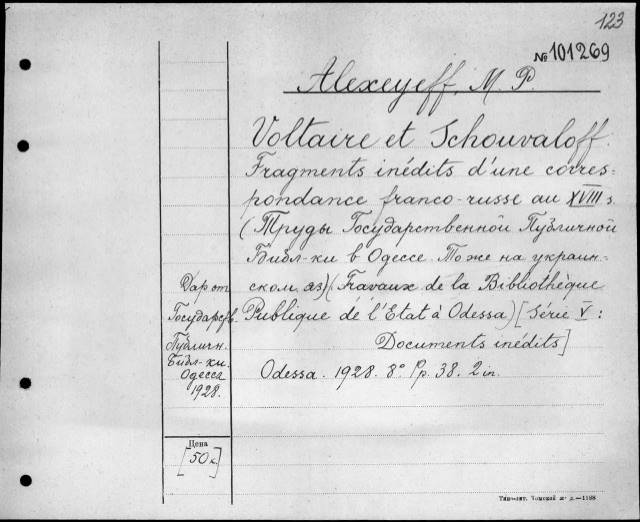 123
№ 101269
Alexeyeff, M. P.
Voltaire et Schouvaloff.
Fragments inédits d'une corres-
pondance franco-russe au XVIII s.
(Труды Государственной Публичной
Библ-ки в Одессе. Тоже на украин-
ском яз) (Travaux de la Bibliothèque
Publique de l'Etat à Odessa) [Série V:
Documents inédits]
Odessa. 1928. 8° Pp. 38. 2 in.
Дар от
Государств.
Публичн.
Библ-ки.
Одесса
1928.
Цена
[50к]
Типо-лит. Томской ж. д.—1188